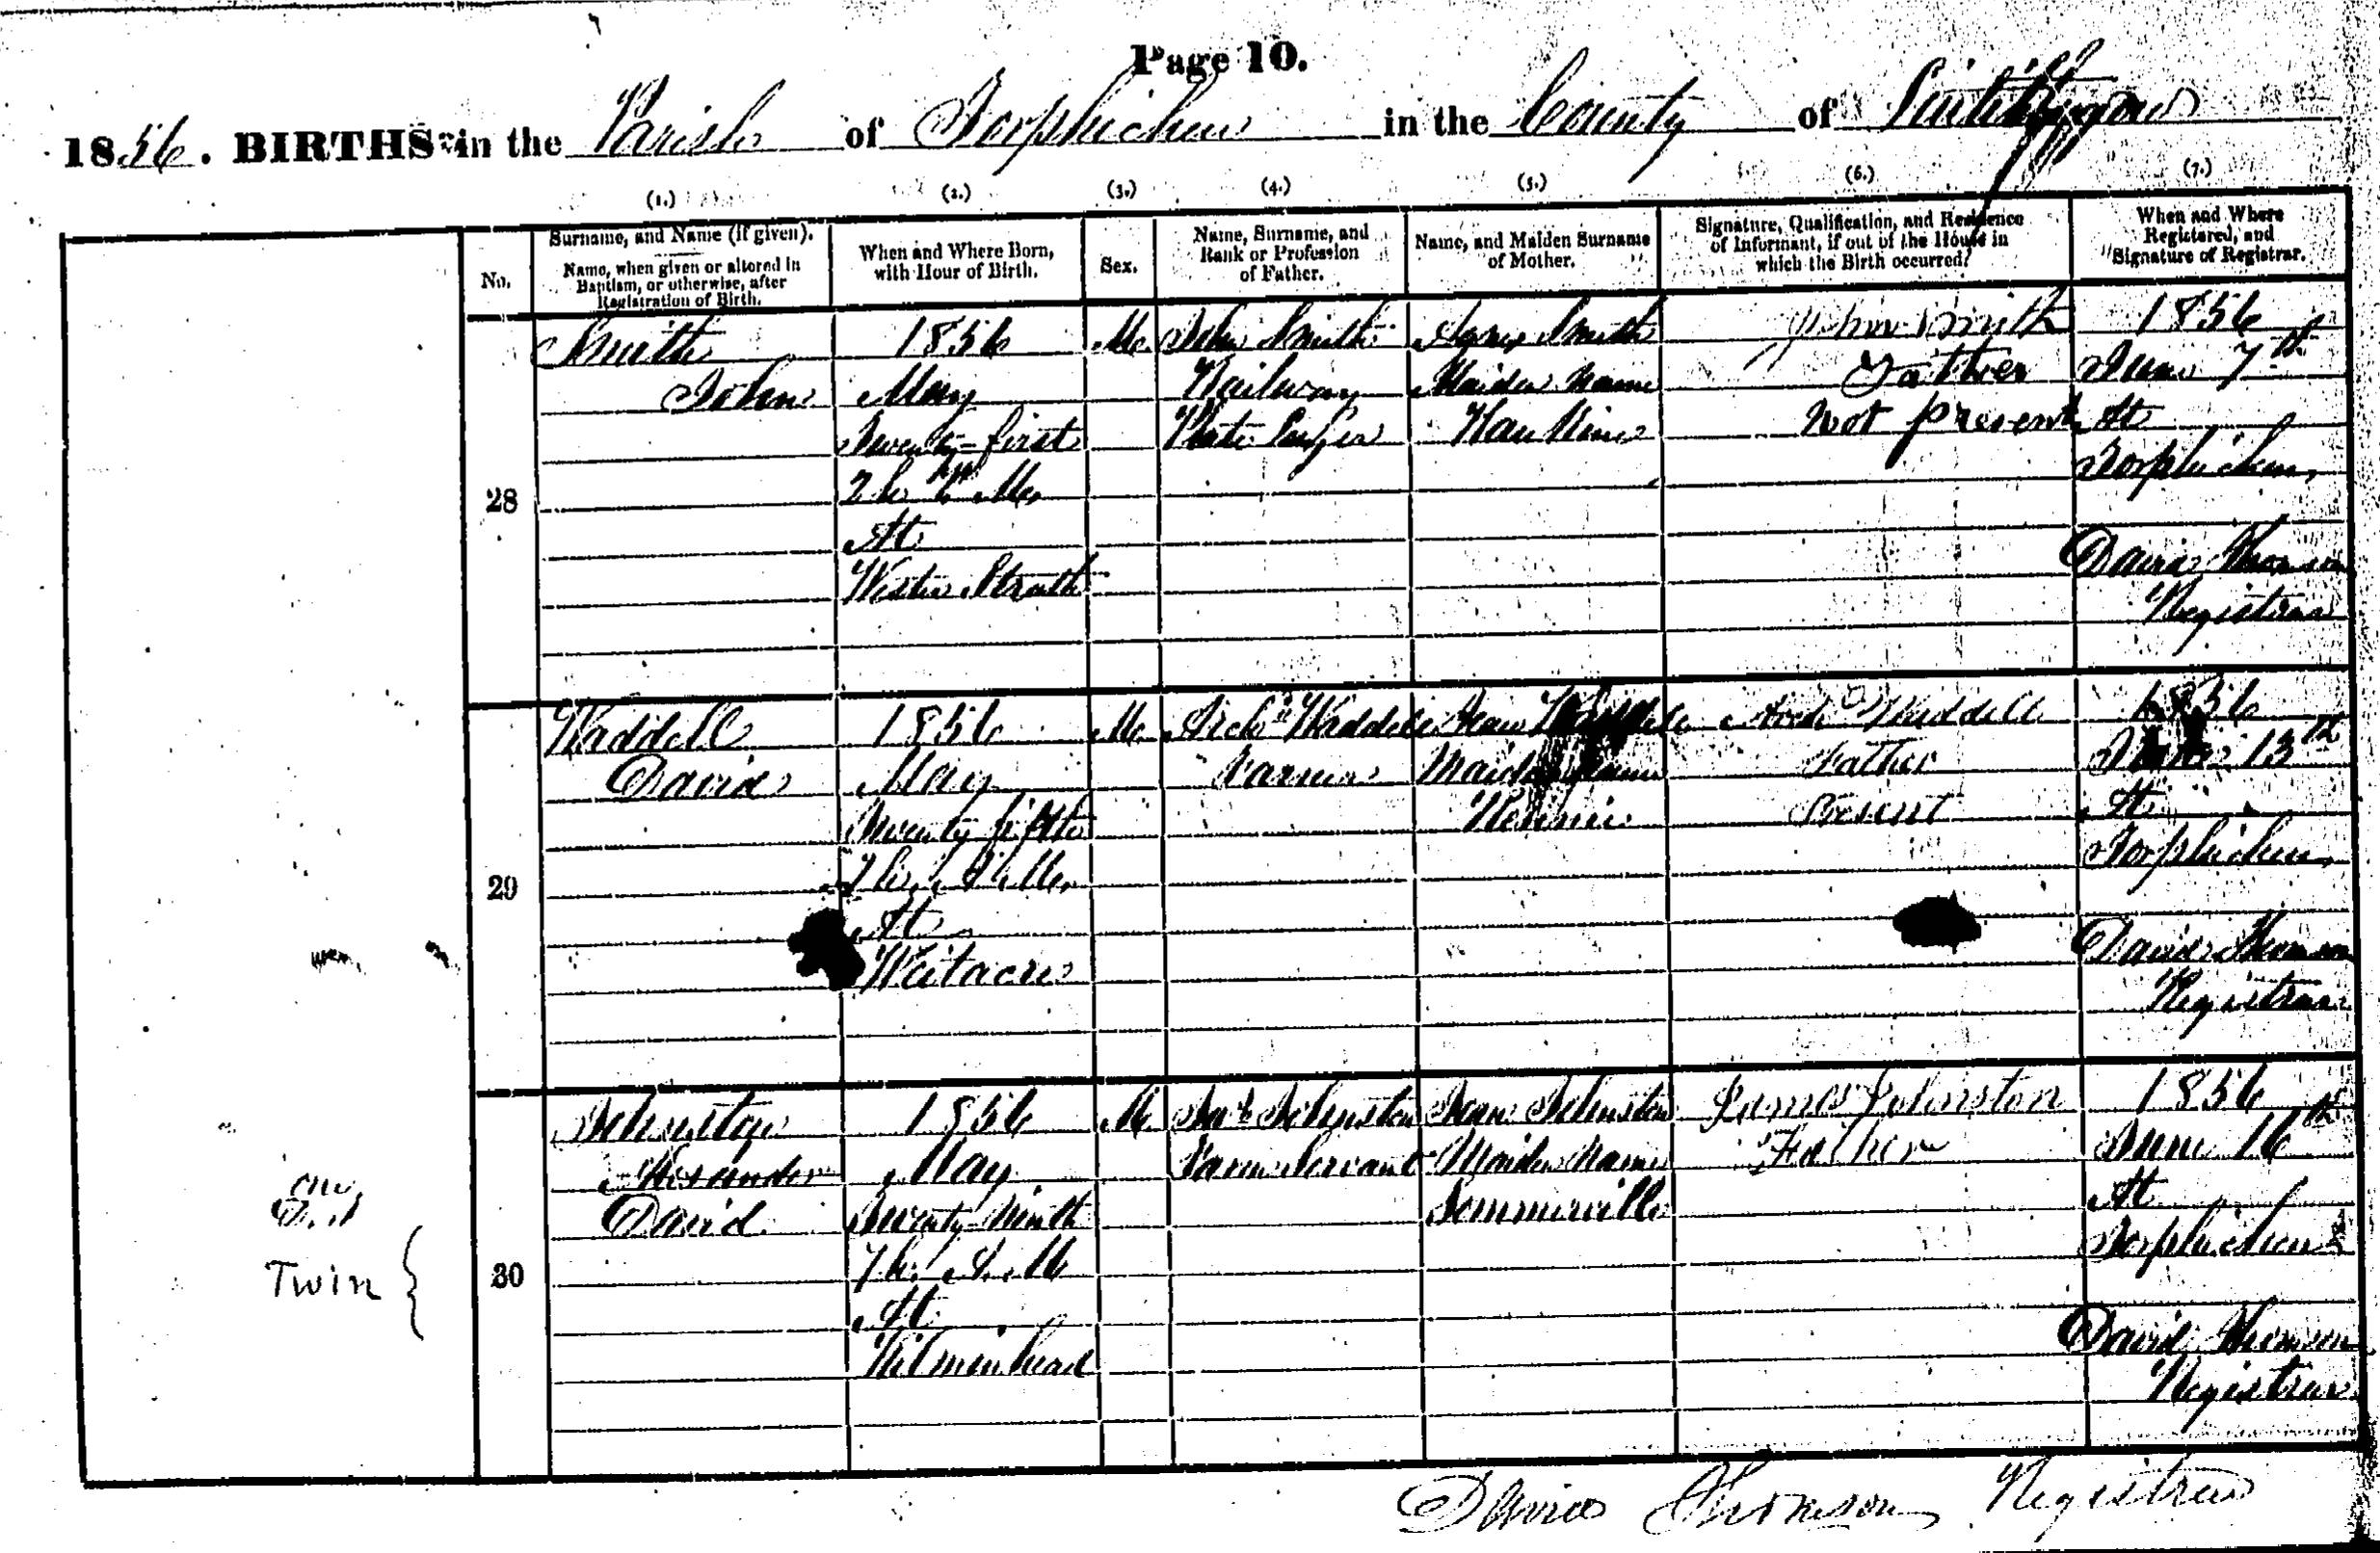 Page 10.
1856. BIRTHS in the Parish of Torphichen in the County of Linlithgow
(1.) (2.) (3.) (4.) (5.) (6.) (7.)
No.
Surname, and Name (if given).
Name, when given or altered in
Baptism, or otherwise, after
Registration of Birth.
When and Where Born,
with Hour of Birth.
Sex.
Name, Surname, and
Rank or Profession
of Father.
Name, and Maiden Surname
of Mother.
Signature, Qualification, and Residence
of Informant, if out of the House in
which the Birth occurred.
When and Where
Registered, and
Signature of Registrar.
28
Smith
John
1856
May
Twenty-first
2h. M.
At
Wester Strath
M.
John Smith
Railway
Plate Layer
Agnes Smith
Maiden Name
John Smith
Father
Not present
1856
June 7th
At
Torphichen,
David Thomson
Registrar
29
Waddell
David
1856
May
Twenty fifth
M.
At
Weitacre
M.
Archd Waddell
Farmer
Jean Waddell
Maiden Name
Rennie
Archd Waddell
Father
Present
1856
June 13th
At
Torphichen,
David Thomson
Registrar
Twin {
30
Johnston
Alexander
David
1856
May
Twenty-Ninth
7h. A. M.
At
M.
Jas Johnston
Farm Servant
Jean Johnston
Maiden Name
Sommerville
James Johnston
Father
1856
June 16th
At
Torphichen
David Thomson
Registrar
David Thomson Registrar